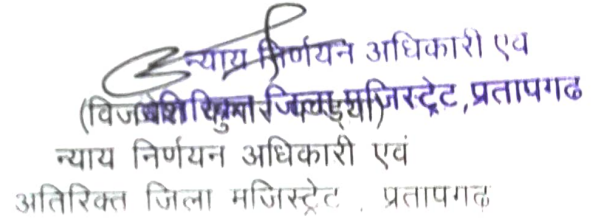 न्याय निर्णयन अधिकारी एव
जिला मजिस्ट्रेट,प्रतापगढ
न्याय निर्णयन अधिकारी एवं
अतिरिक्त जिला मजिस्ट्रेट प्रतापगढ़